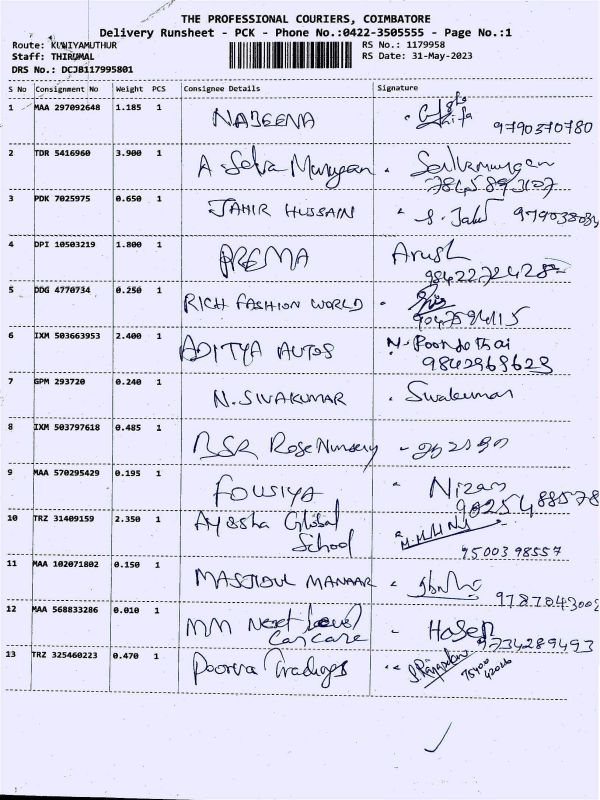 THE PROFESSIONAL COURIERS, COIMBATORE
Delivery Runsheet - PCK - Phone No.:0422-3505555 - Page No.:1
Route: KUNIYAMUTHUR RS No.: 1179958
Staff: THIRUMAL RS Date: 31-May-2023
DRS No.: DCJB117995801
S No Consignment No Weight PCS Consignee Details Signature
1 MAA 297092648 1.185 1 NAJEENA 9790370780
2 TDR 5416960 3.900 1 A Selva Murugan
3 PDK 7025975 0.650 1 JAHIR HUSSAIN
4 DPI 10503219 1.800 1 PREMA Arush
5 DDG 4770734 0.250 1 RICH FASHION WORLD
6 IXM 503663953 2.400 1 ADITYA AUTOS
7 GPM 293720 0.240 1 N.SIVAKUMAR Sivakumar
8 IXM 503797618 0.485 1 RSR Rose Nursery
9 MAA 570295429 0.195 1 FOUSIYA Nizam
9025488578
10 TRZ 31409159 2.350 1 Ayessha Global
School
9500398557
11 MAA 102071802 0.150 1 MASJIDUL MANAAR
12 MAA 568833286 0.010 1 MM Next Level
Car care
9734289493
13 TRZ 325460223 0.470 1 Poorva Tradings